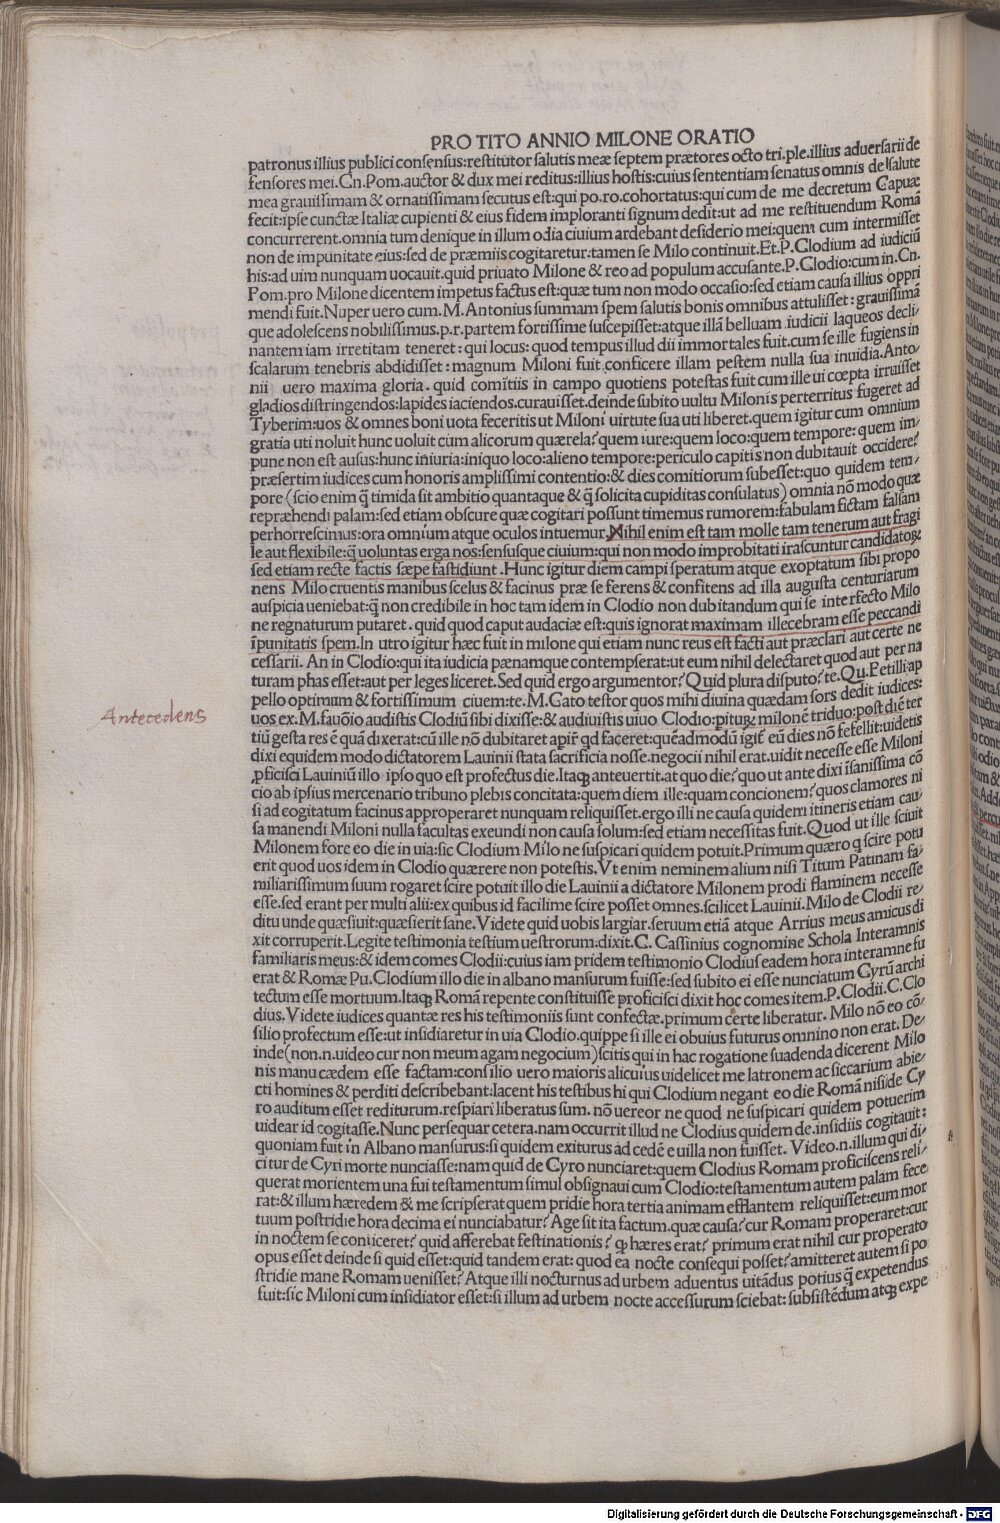 PRO TITO ANNIO MILONE ORATIO
patronus illius publici consensus:restitutor salutis meæ septem prætores octo tri.ple.illius aduersarii de
fensores mei.Cn.Pom.auctor & dux mei reditus:illius hostis:cuius sententiam senatus omnis de salute
mea grauissimam & ornatissimam secutus est:qui po.ro.cohortatus:qui cum de me decretum Capuæ
fecit:ipse cunctæ Italiæ cupienti & eius fidem imploranti signum dedit:ut ad me restituendum Romã
concurrerent.omnia tum denique in illum odia ciuium ardebant desiderio mei:quem cum intermisset
non de impunitate eius:sed de præmiis cogitaretur:tamen se Milo continuit.Et.P.Clodium ad iudiciũ
his:ad uim nunquam uocauit.quid priuato Milone & reo ad populum accusante.P.Clodio:cum in.Cn.
Pom.pro Milone dicentem impetus factus est:quæ tum non modo occasio:sed etiam causa illius oppri
mendi fuit.Nuper uero cum.M.Antonius summam spem salutis bonis omnibus attulisset:grauissimã
que adolescens nobilissimus.p.r.partem fortissime suscepisset:atque illã belluam iudicii laqueos decli/
nantem iam irretitam teneret:qui locus:quod tempus illud dii immortales fuit.cum se ille fugiens in
scalarum tenebris abdidisset:magnum Miloni fuit conficere illam pestem nulla sua inuidia.Anto/
nii uero maxima gloria.quid comitiis in campo quotiens potestas fuit cum ille ui cœpta irruisset
gladios distringendos:lapides iaciendos.curauisset.deinde subito uultu Milonis perterritus fugeret ad
Tyberim:uos & omnes boni uota feceritis ut Miloni uirtute sua uti liberet.quem igitur cum omnium
gratia uti noluit hunc uoluit cũm alicorum quærela?quem iure:quem loco:quem tempore:quem im/
pune non est ausus:hunc iniuria:iniquo loco:alieno tempore:periculo capitis non dubitauit occidere?
præsertim iudices cum honoris amplissimi contentio:& dies comitiorum subesset:quo quidem tem/
pore (scio enim q̃ timida sit ambitio quantaque & q̃ solicita cupiditas consulatus) omnia nõ modo quæ
repræhendi palam:sed etiam obscure quæ cogitari possunt timemus rumorem:fabulam fictam falsam
perhorrescimus:ora omnium atque oculos intuemur.Nihil enim est tam molle tam tenerum aut fragi
le aut flexibile:q̃ uoluntas erga nos:sensusque ciuium:qui non modo improbitati irascuntur candidatoꝝ
sed etiam recte factis sæpe fastidiunt.Hunc igitur diem campi speratum atque exoptatum sibi propo
nens Milo cruentis manibus scelus & facinus præ se ferens & confitens ad illa augusta centuriarum
auspicia ueniebat:q̃ non credibile in hoc tam idem in Clodio non dubitandum qui se interfecto Milo
ne regnaturum putaret.quid quod caput audaciæ est:quis ignorat maximam illecebram esse peccandi
ĩpunitatis spem.In utro igitur hæc fuit in milone qui etiam nunc reus est facti aut præclari aut certe ne
cessarii. An in Clodio:qui ita iudicia pænamque contempserat:ut eum nihil delectaret quod aut per na
turam phas esset:aut per leges liceret.Sed quid ergo argumentor?Quid plura disputo?te.Qu.Petilli ap
pello optimum & fortissimum ciuem:te.M.Gato testor quos mihi diuina quædam sors dedit iudices:
Antecedens
uos ex.M.fauõio audistis Clodiũ sibi dixisse:& audiuistis uiuo Clodio:pituꝝ milonẽ triduo:post diẽ ter
tiũ gesta res ẽ quã dixerat:cũ ille nõ dubitaret apirẽ qd faceret:quẽadmodũ igiť eũ dies nõ fefellit:uidetis
dixi equidem modo dictatorem Lauinii stata sacrificia nosse.negocii nihil erat.uidit necesse esse Miloni
ꝓficisci Lauiniũ illo ipso quo est profectus die.Itaqꝫ anteuertit.at quo die?quo ut ante dixi ĩsanissima cõ
cio ab ipsius mercenario tribuno plebis concitata:quem diem ille:quam concionem?quos clamores ni
si ad cogitatum facinus approperaret nunquam reliquisset.ergo illi ne causa quidem itineris etiam cau/
sa manendi Miloni nulla facultas exeundi non causa solum:sed etiam necessitas fuit.Quod ut ille sciuit
Milonem fore eo die in uia:sic Clodium Milo ne suspicari quidem potuit.Primum quæro q̃ scire potu
erit quod uos idem in Clodio quærere non potestis.Vt enim neminem alium nisi Titum Patinam fa/
miliarissimum suum rogaret scire potuit illo die Lauinii a dictatore Milonem prodi flaminem necesse
esse.sed erant per multi alii:ex quibus id facilime scire posset omnes.scilicet Lauinii.Milo de Clodii re/
ditu unde quæsiuit:quæsierit sane.Videte quid uobis largiar.seruum etiã atque Arrius meus amicus di
xit corruperit.Legite testimonia testium uestrorum:dixit.C. Cassinius cognomine Schola Interamnis
familiaris meus:& idem comes Clodii:cuius iam pridem testimonio Clodius eadem hora interamne fu
erat & Romæ Pu.Clodium illo die in albano mansurum fuisse:sed subito ei esse nunciatum Cyrũ archi
tectum esse mortuum.Itaqꝫ Romã repente constituisse proficisci dixit hoc comes item.P.Clodii.C.Clo
dius.Videte iudices quantæ res his testimoniis sunt confectæ.primum certe liberatur. Milo nõ eo cõ/
silio profectum esse:ut insidiaretur in uia Clodio.quippe si ille ei obuius futurus omnino non erat. De/
inde(non.n.uideo cur non meum agam negocium)scitis qui in hac rogatione suadenda dicerent Milo
nis manu cædem esse factam:consilio uero maioris alicuius uidelicet me latronem ac siccarium abie/
cti homines & perditi describebant:Iacent his testibus hi qui Clodium negant eo die Romã nisi de Cy
ro auditum esset rediturum.respiari liberatus sum. nõ uereor ne quod ne suspicari quidem potuerim
uidear id cogitasse.Nunc persequar cetera.nam occurrit illud ne Clodius quidem de.insidiis cogitauit:
quoniam fuit in Albano mansurus:si quidem exiturus ad cedẽ e uilla non fuisset. Video.n.illum qui di/
citur de Cyri morte nunciasse:nam quid de Cyro nunciaret:quem Clodius Romam proficiscens reli/
querat morientem una fui testamentum simul obsignaui cum Clodio:testamentum autem palam fece
rat:& illum hæredem & me scripserat quem pridie hora tertia animam efflantem reliquisset:eum mor
tuum postridie hora decima ei nunciabatur?Age sit ita factum.quæ causa?cur Romam properaret:cur
in noctem se coniiceret?quid afferebat festinationis? qꝫ hæres erat? primum erat nihil cur properato
opus esset deinde si quid esset:quid tandem erat: quod ea nocte consequi posset?amitteret autem si po
stridie mane Romam uenisset?Atque illi nocturnus ad urbem aduentus uitãdus potius q̃ expetendus
fuit:sic Miloni cum insidiator esset:si illum ad urbem nocte accessurum sciebat:subsistẽdum atqꝫ expe
Digitalisierung gefördert durch die Deutsche Forschungsgemeinschaft - DFG